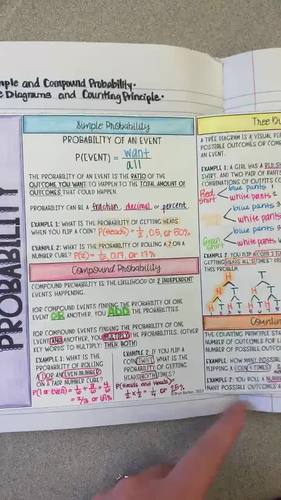 mple and Compound Probability.
e Diagrams and Counting Principle.
PROBABILITY
Simple Probability
PROBABILITY OF AN EVENT
P(EVENT) = want
all
THE PROBABILITY OF AN EVENT IS THE RATIO OF THE
OUTCOME YOU WANT TO HAPPEN TO THE TOTAL AMOUNT OF
OUTCOMES THAT COULD HAPPEN.
PROBABILITY CAN BE A fraction, decimal or percent.
EXAMPLE 1: WHAT IS THE PROBABILITY OF GETTING HEADS
WHEN YOU FLIP A COIN? P(Heads) = 1/2, 0.5, or 50%
EXAMPLE 2: WHAT IS THE PROBABILITY OF ROLLING A 2 ON A
NUMBER CUBE? P(2) = 1/6, 0.17, or 17%
Compound Probability
COMPOUND PROBABILITY IS THE LIKELIHOOD OF 2 INDEPENDENT
EVENTS HAPPENING.
FOR COMPOUND EVENTS FINDING THE PROBABILITY OF ONE
EVENT OR ANOTHER, YOU ADD THE PROBABILITIES
FOR COMPOUND EVENTS FINDING THE PROBABILITY OF ONE
EVENT AND ANOTHER, YOU MULTIPLY THE PROBABILITIES. (OTHER
KEY WORDS TO MULTIPLY: THEN, BOTH)
EXAMPLE 1: WHAT IS THE
PROBABILITY OF ROLLING
A 1 OR AN EVEN NUMBER
ON A FAIR NUMBER CUBE?
P(1 or even) = 1/6 + 3/6 = 4/6
= 2/3 or 67%
EXAMPLE 2: IF YOU FLIP A
COIN TWICE, WHAT IS THE
PROBABILITY OF GETTING
HEADS BOTH TIMES?
P(Heads and Heads) =
1/2 x 1/2 = 1/4 or 25%
Tree Di
A TREE DIAGRAM IS A VISUAL REP
POSSIBLE OUTCOMES OR COMB
AN EVENT.
EXAMPLE 1: A GIRL HAS A RED SH
SHIRT, AND TWO PAIR OF PANTS
COMBINATIONS OF OUTFITS C
Red Shirt
blue pants 1
white pants 2
blue pants 3
white pants
Green Shirt
blue pants
white pants
EXAMPLE 2: YOU FLIP A COIN 3 T
THIS PROBLEM.
H
T
H T H T
Countin
THE COUNTING PRINCIPLE STA
NUMBER OF OUTCOMES FOR
NUMBER OF POSSIBLE OUTCOM
EXAMPLE: HOW MANY POSSIBLE
FLIPPING A COIN 3 TIMES?
EXAMPLE 2: YOU ROLL A NUMBE
MANY POSSIBLE OUTCOMES A